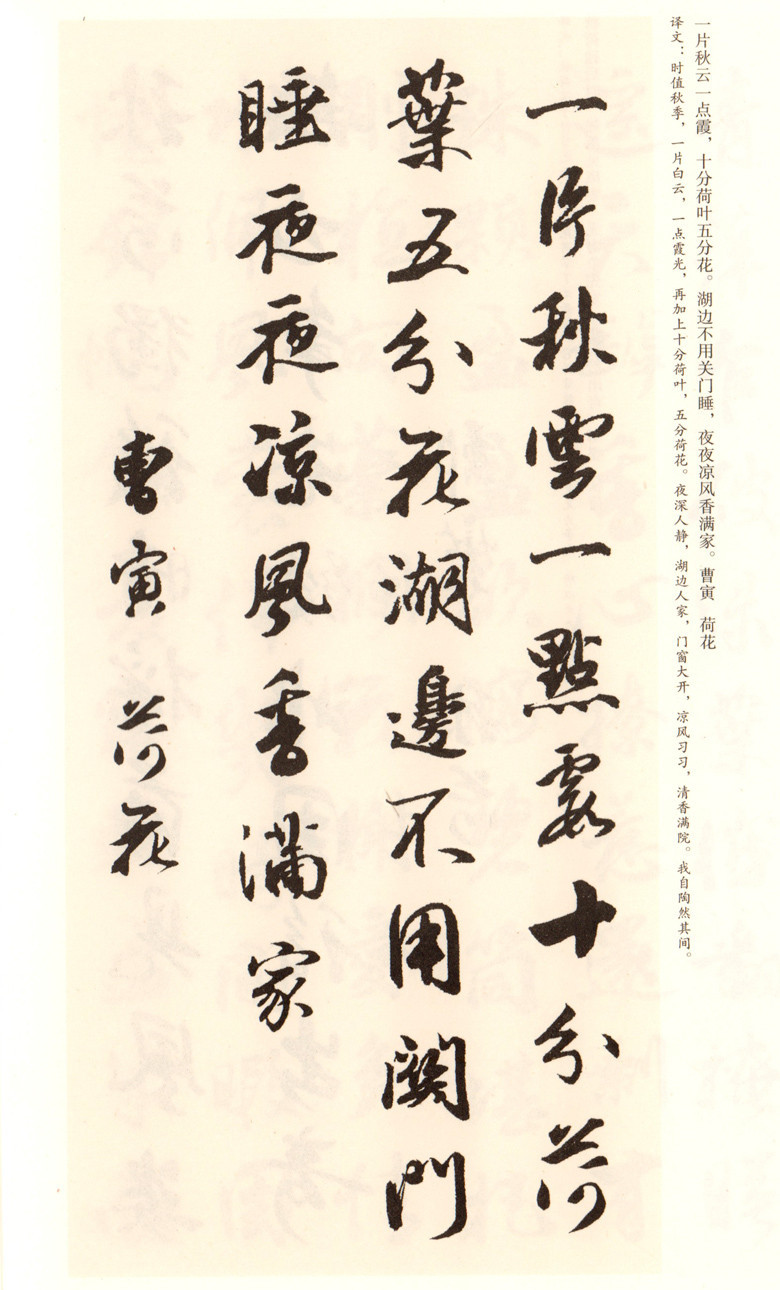 一片秋云一点霞，十分荷叶五分花。湖边不用关门睡，夜夜凉风香满家。曹寅　荷花
译文：时值秋季，一片白云，一点霞光，再加上十分荷叶，五分荷花。夜深人静，湖边人家，门窗大开，凉风习习，清香满院。我自陶然其间。
一片秋雲一點霞十分荷
葉五分花湖邊不用関門
睡夜夜凉風香滿家
曹寅　荷花